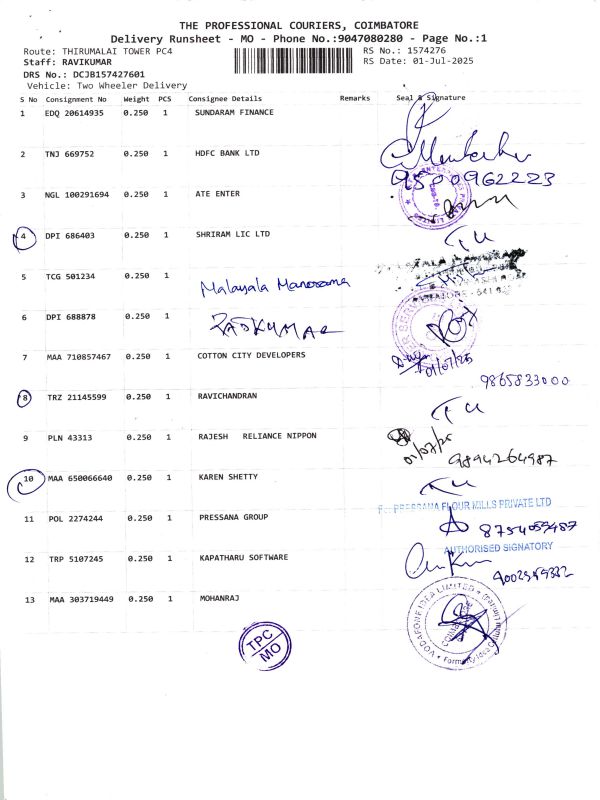 THE PROFESSIONAL COURIERS, COIMBATORE
Delivery Runsheet - MO - Phone No.:9047080280 - Page No.:1
Route: THIRUMALAI TOWER PC4
RS No.: 1574276
Staff: RAVIKUMAR
RS Date: 01-Jul-2025
DRS No.: DCJB157427601
Vehicle: Two Wheeler Delivery
S No Consignment No Weight PCS Consignee Details Remarks Seal & Signature
1 EDQ 20614935 0.250 1 SUNDARAM FINANCE
2 TNJ 669752 0.250 1 HDFC BANK LTD
9500962223
3 NGL 100291694 0.250 1 ATE ENTER
4 DPI 686403 0.250 1 SHRIRAM LIC LTD
5 TCG 501234 0.250 1 Malayala Manorama
6 DPI 688878 0.250 1 RAJKUMAR
7 MAA 710857467 0.250 1 COTTON CITY DEVELOPERS
01/07/25
9865833000
8 TRZ 21145599 0.250 1 RAVICHANDRAN
9 PLN 43313 0.250 1 RAJESH RELIANCE NIPPON
01/07/25
9894264987
10 MAA 650066640 0.250 1 KAREN SHETTY
PRESSANA FLOUR MILLS PRIVATE LTD
11 POL 2274244 0.250 1 PRESSANA GROUP
AUTHORISED SIGNATORY
12 TRP 5107245 0.250 1 KAPATHARU SOFTWARE
13 MAA 303719449 0.250 1 MOHANRAJ
VODAFONE IDEA LIMITED
TPC
MO